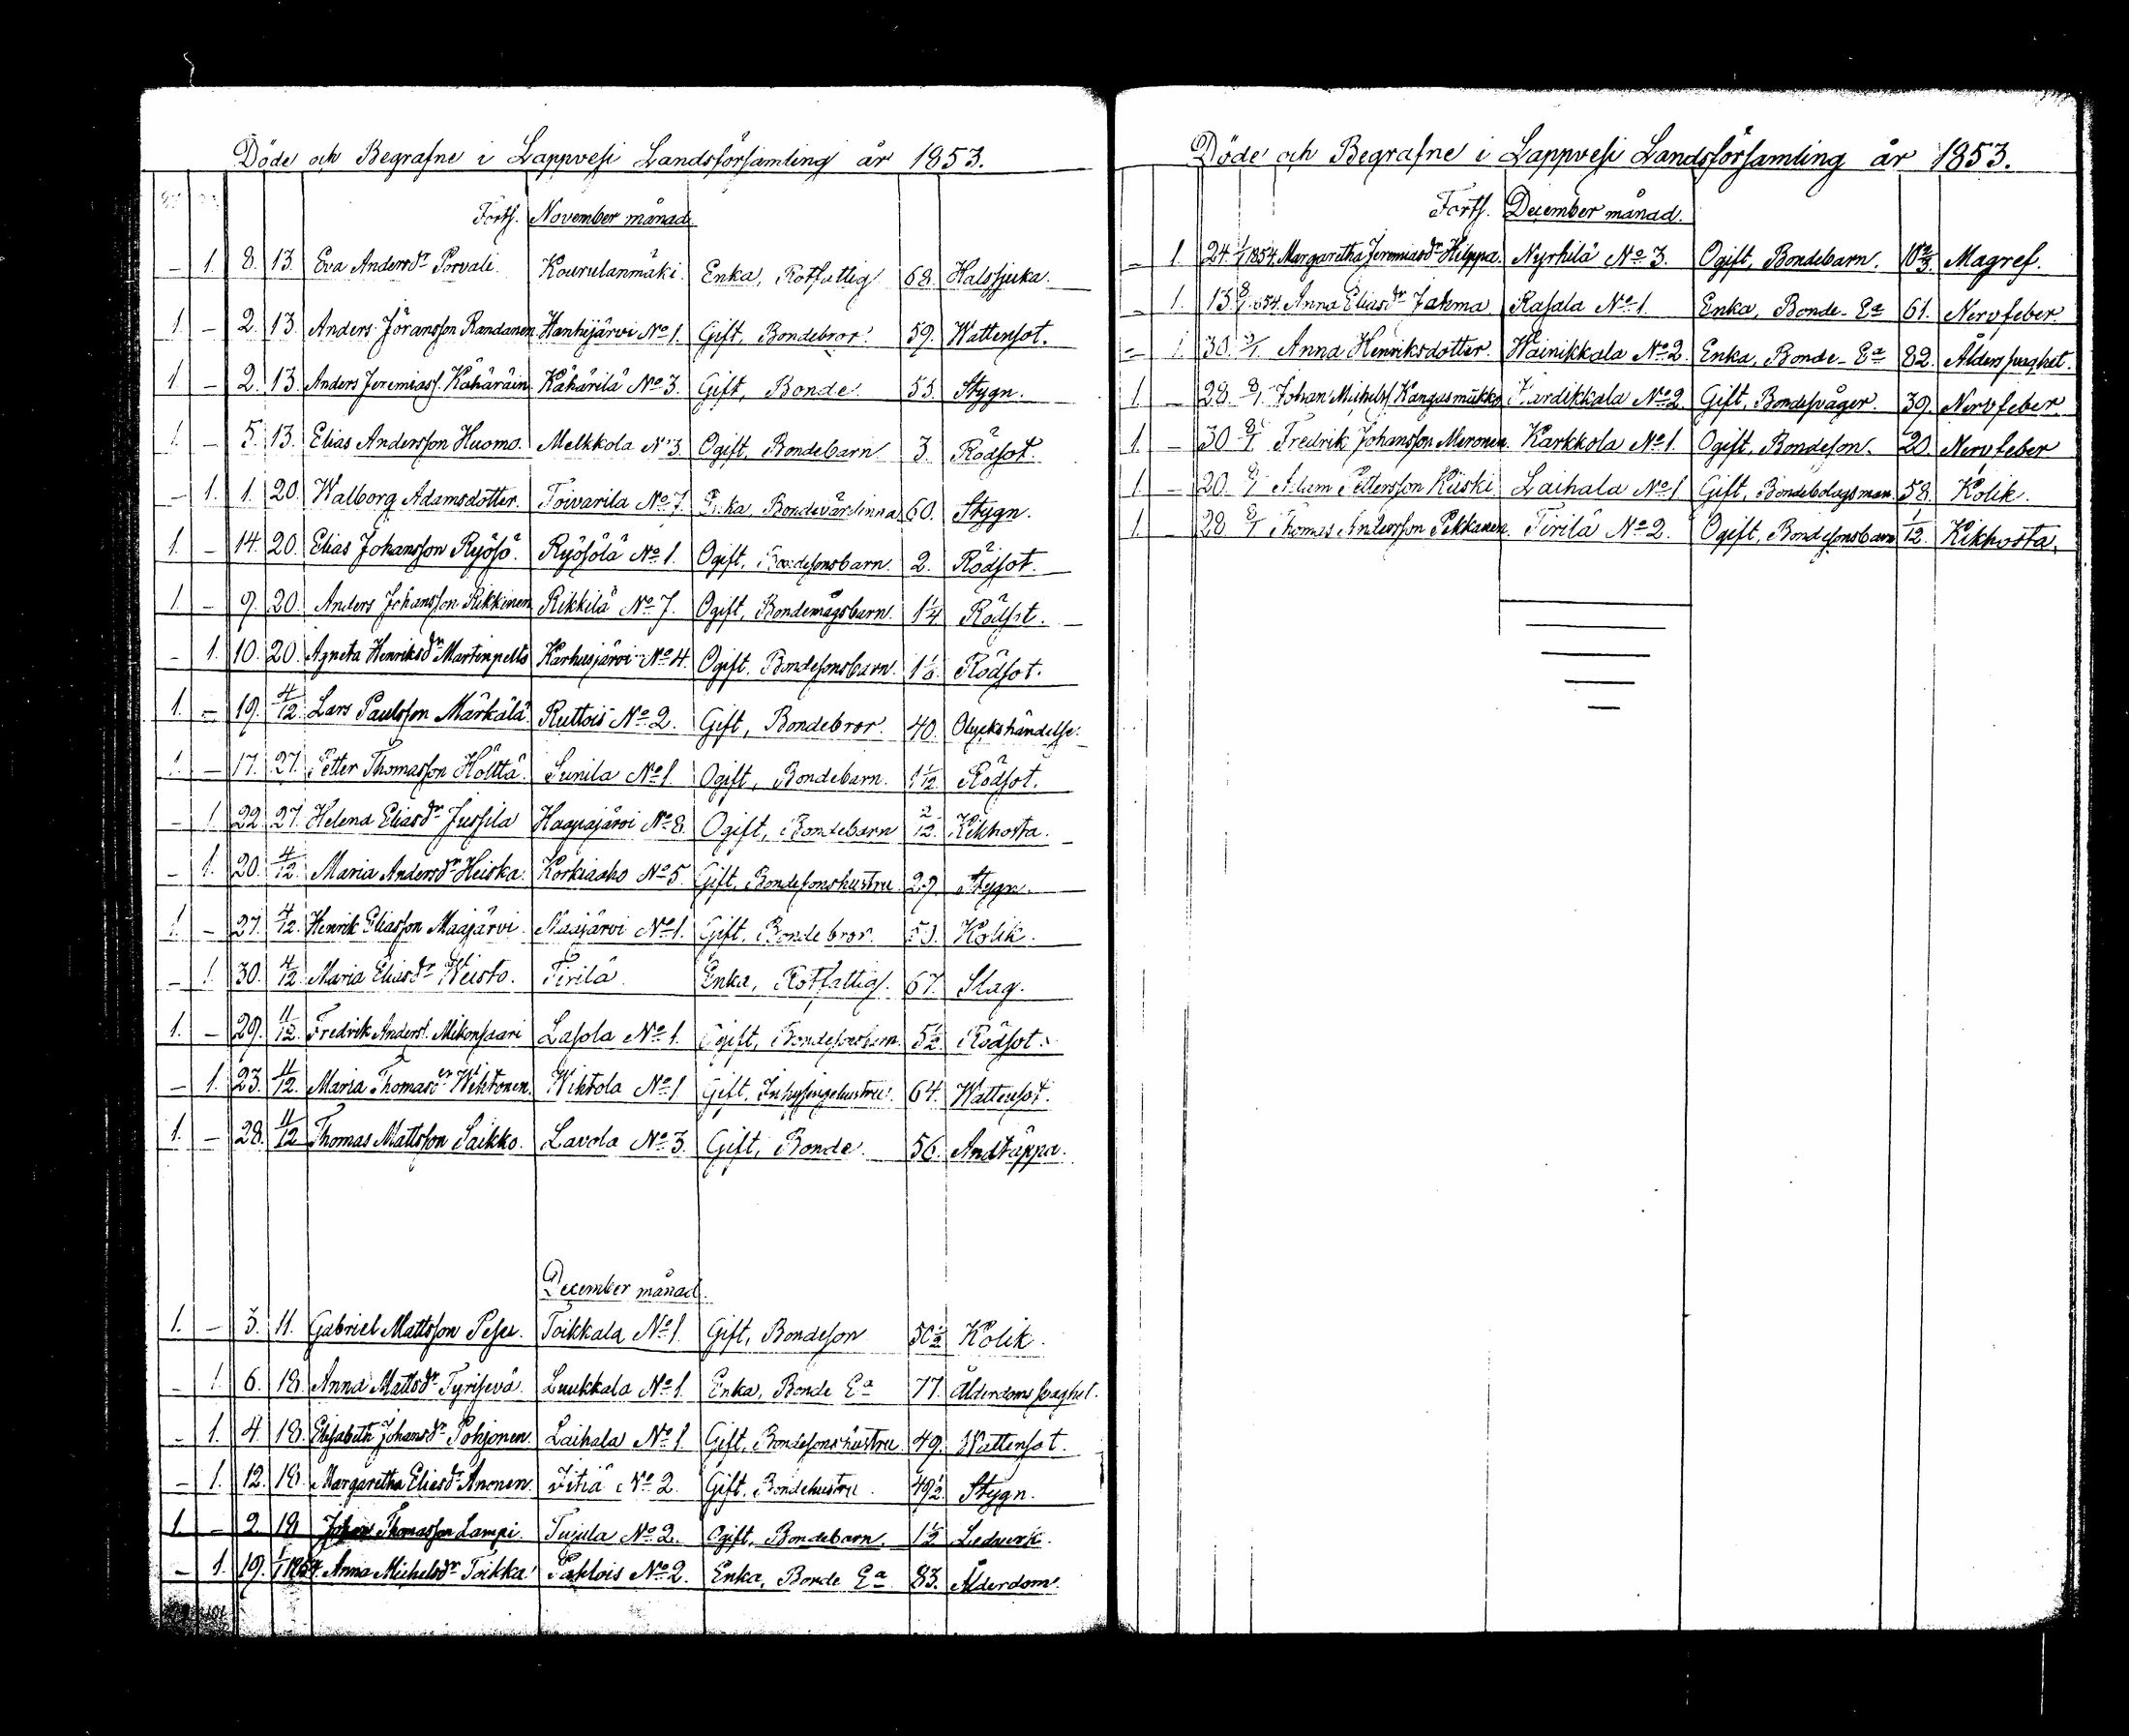 Döde och Begrafne i Lappvesi Landsförsamling år 1853.
Forts. November månad.
– 1. 8. 13. Eva Andersdr Porvali. Kourulanmäki. Enka, Rotfattig 68. Halssjuka.
1. – 2. 13. Anders Jöransson Randanen Hanhijärvi No 1. Gift, Bondebror. 59. Wattensot.
1. – 2. 13. Anders Jeremiass. Kähäräin Kähärilä No 3. Gift, Bonde. 53. Stygn.
1. – 5. 13. Elias Andersson Huomo. Melkkola No 3. Ogift, Bondebarn 3. Rödsot.
– 1. 1. 20. Walborg Adamsdotter. Toivarila No 7. Enka, Bondevärdinna 60. Stygn.
1. – 14. 20. Elias Johansson Ryösö. Ryösölä No 1. Ogift, Bondesonsbarn. 2. Rödsot.
1. – 9. 20. Anders Johansson Rikkinen Rikkilä No 7. Ogift, Bondemågsbarn. 1 1/4 Rödsot.
– 1. 10. 20. Agneta Henriksdr Martinpelto Karhusjärvi No 4. Ogift. Bondesonsbarn. Rödsot.
1. – 19. 4/12. Lars Paulsson Märkälä. Ruttois No 2. Gift, Bondebror. 40. Olyckshändelse.
1. – 17. 27. Petter Thomasson Hölttä. Sunila No 1. Ogift, Bondebarn. 1 1/12 Rödsot.
– 1. 22. 27. Helena Eliasdr Jussila Haapajärvi No 8. Ogift, Bondebarn 2/12. Kikhosta.
– 1. 20. 4/12. Maria Andersdr Heiska. Korkiaaho No 5. Gift. Bondesonshustru 29. Stygn.
1. – 27. 4/12. Henrik Eliasson Maajärvi. Maajärvi No 1. Gift. Bondebror. Kolik.
– 1. 30. 4/12. Maria Eliasdr Weisto. Tirilä. Enka, Rotfattig. 67. Slag.
1. – 29. 11/12. Fredrik Anders. Mikonsaari Lasola No 1. Ogift, 5 1/2. Rödsot.
– 1. 23. 11/12. Maria Thomasdr Wihtonen. Wihtola No 1 Gift. Inhysingehustru. 64. Wattensot.
1. – 28. 11/12 Thomas Mattsson Saikko. Lavola No 3. Gift, Bonde. 56. Andtäppa.
December månad.
1. – 3. 11. Gabriel Mattsson Pesu. Toikkala No 1. Gift, Bondeson 50 1/2 Kolik.
– 1. 6. 18. Anna Mattsdr Tyrisevä. Luukkala No 1. Enka, Bonde Ea 77. Ålderdomssvaghet.
– 1. 4. 18. Elisabeth Johansdr Pohjonen. Laihala No 1. Gift, Bondesonshustru 49. Wattensot.
– 1. 12. 18. Margaretha Eliasdr Anonen. Itiä No 2. Gift. Bondehustru. 49 1/2. Stygn.
1. – 2. 18 Johan Thomasson Lampi. Tujula No 2. Ogift, Bondebarn. 1 1/2 Ledverk.
– 1. 19. 1/1 1854. Anna Michelsdr Toikka. Pahlois No 2. Enka, Bonde Ea 83. Ålderdom.
Döde och Begrafne i Lappvesi Landsförsamling år 1853.
Forts. December månad.
– 1. 24. 1/1 1854. Margaretha Jeremiasdr Hilppa. Nyrhilä No 3. Ogift, Bondebarn. 10 2/3. Magref.
– 1. 13. 8/1. 854. Anna Eliasdr Jahma Rasala No 1. Enka, Bonde-Ea 61. Nervfeber.
– 1. 30. Anna Henriksdotter. Wainikkala No 2. Enka, Bonde-Ea 82. Åldersvaghet.
1. – 28. 8/1. Johan Michelss Kangasmukko Hardikkala No 2 Gift, Bondesvåger. 39. Nervfeber
1. – 30 8/1. Fredrik Johansson Meronen. Karkkola No 1. Ogift, Bondeson. 20. Nervfeber
1. – 20. Adam Pettersson Kiiski Laihala No 1 Gift, Bondebolagsman. 58. Kolik.
1. – 28. 8/1 Thomas Andersson Pekkanen. Tirilä No 2. Ogift, Bondesonsbarn 1/12. Kikhosta.